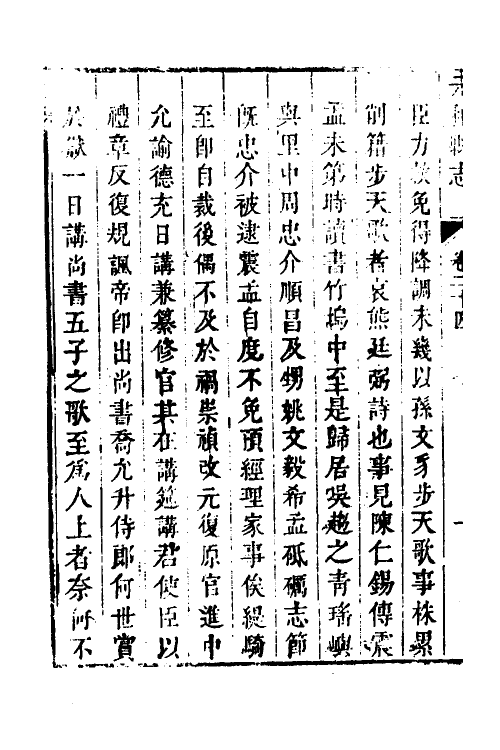 臣力救免得降調未幾以孫文豸步天歌事株累
削籍步天歌者哀熊廷弼詩也事見陳仁錫傳震
孟未第時讀書竹塢中至是歸居吳趨之青瑤嶼
與里中周忠介順昌及甥姚文毅希孟砥礪志節
旣忠介被逮震孟自度不免預經理家事俟緹騎
至卽自裁後偶不及於禍崇禎改元復原官進中
允諭德充日講兼纂修官其在講筵講君使臣以
禮章反復規諷帝卽出尚書喬允升侍郞何世賞
於獄一日講尚書五子之歌至爲人上者奈何不
志
卷二十四